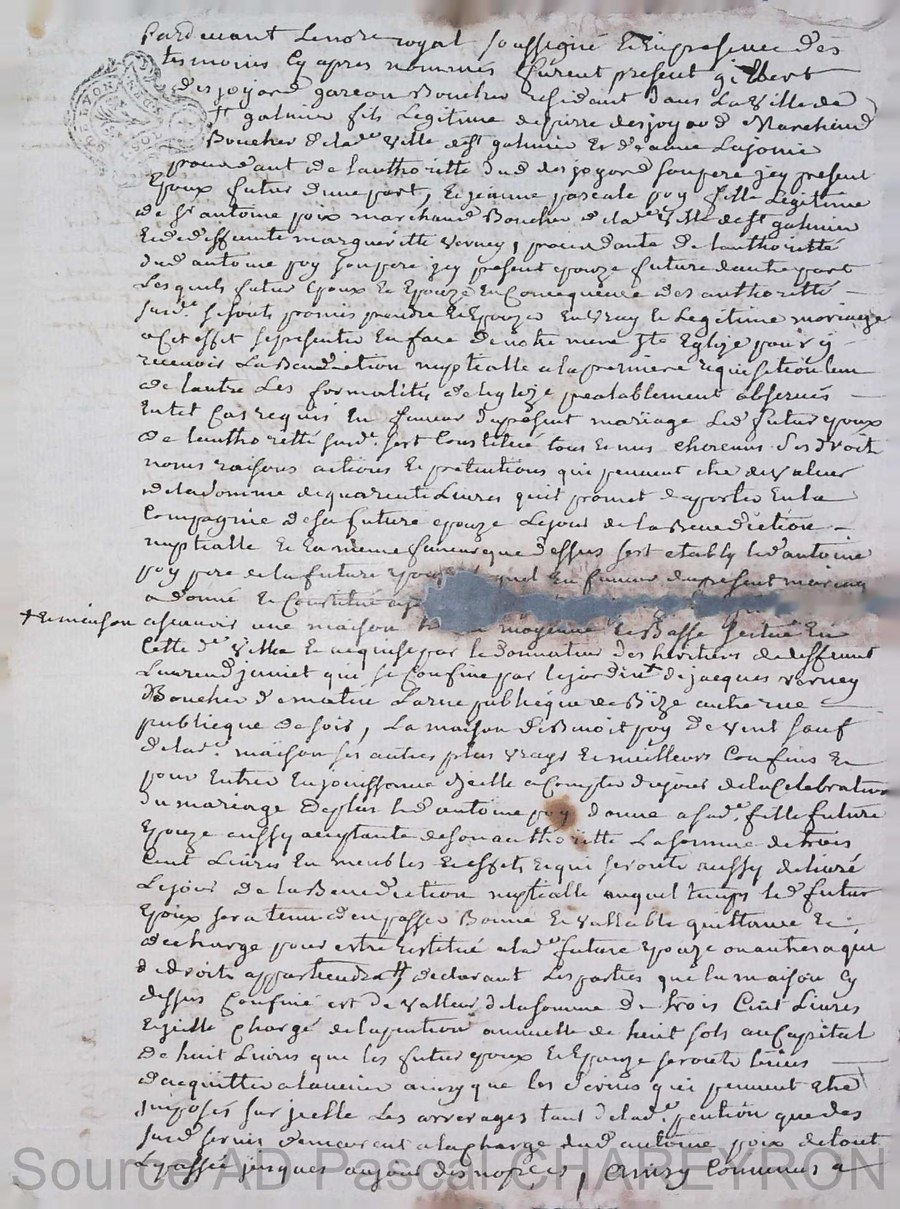 Pardevant Le no.re royal soussigné Et En presence des
tesmoins Cy apres nommés furent present gilbert
desjoyard garcon Boucher residant dans La Ville de
st galmier fils Legitime de pierre desjoyard Marchand
Boucher de lad.e Ville de st galmier Et d'anne
procedant de Lauthoritté dud desjoyard son pere jcy present
Epoux futur d'une part, Et jeanne pascale poy fille Legitime
de sr antoine poix marchand Boucher de lad.e Ville de st galmier
Et de deffunte margueritte Verney, procedante de Lauthoritté
dud antoine poy son pere jcy present epouze future dautre part
Lesquels futur Epoux Et Epouze En Consequence des authoritté
susd.e se sont promis prendre Et Epouzer En Vray Et Legitime mariage
a Cet effet se presenter En face de notre mere ste Eglize pour y
recevoir La Benediction nuptialle a la premiere requisition lun
de lautre Les formalités de leglize prealablement observés
En tel Cas requis En faveur du present mariage Led futur epoux
de Lauthoritté susd.e sest Constitué tous Et uns chacuns ses droits
noms raisons actions Et pretentions qui peuvent etre de valeur
de la somme de quarente Livres quil promet daporter En la
Compagnie de sa future epouze Le jour de la Benediction
nuptialle Et En la meme faveur que dessus sest etably led antoine
poy pere de la future Epouze Lequel En faveur du present mariage
a donné Et Constitué a
+ Et maison
ascavoir une maison moyenne Et Basse scitué En
Cette d.e Ville Et acquise par le donnateur des heritiers de deffunt
Laurend juniet qui se Confine par le jardin de jacques Verney
Boucher de matin La rue publique de Bize autre rue
publique de soir, La maison de Benoit poy de vent sauf
de lad.e maison ses autres plus vrays Et meilleurs Confins Et
pour Entrer En jouissance dicelle a Compter du jour de la Celebration
du mariage De plus led antoine poy donne a sad.e fille future
Epouze aussy acceptante de son authoritté La somme de trois
Cent Livres En meubles Et effets Et qui seront aussy delivré
Le jour de la Benediction nuptialle auquel temps led futur
Epoux sera tenu den passer Bonne Et Vallable quittance Et
decharge pour estre restitué a lad.e future Epouze ou autre a qui
de droit appartiendra, declarant Les parties que la maison Cy
dessus Confiné est de Valleur de la somme de trois Cent Livres
Et jcelle Chargé de la pention annuelle de huit sols au Capital
de huit Livres que les futur epoux Et Epouze seront tenus
dacquitter a lavenir ainsy que les servis qui peuvent etre
imposés sur jcelle Les arrerages tant de lad.e pention que des
susd servis demeurent a la charge dud antoine poix de tout
Le passé jusques au jour des nopces, ainsy Convenus a
Source AD Pascal CHAREYRON